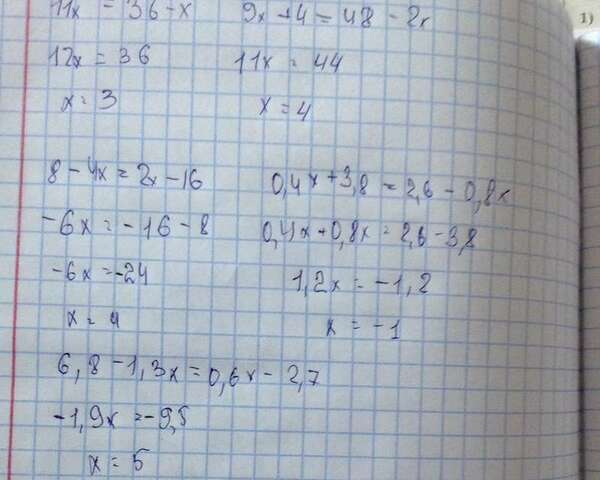 11x = 36 - x
9x + 4 = 48 - 2x
12x = 36
11x = 44
x = 3
x = 4
8 - 4x = 2x - 16
0,4x + 3,8 = 2,6 - 0,8x
-6x = -16 - 8
0,4x + 0,8x = 2,6 - 3,8
-6x = -24
1,2x = -1,2
x = 4
x = -1
6,8 - 1,3x = 0,6x - 2,7
-1,9x = -9,5
x = 5
1)